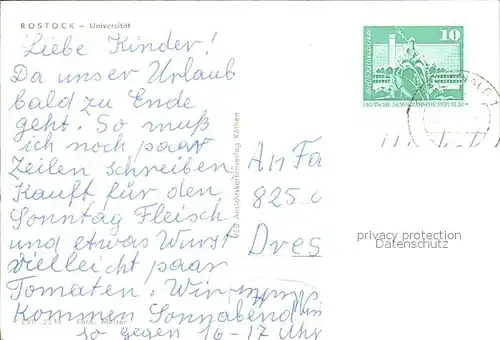 ROSTOCK – Universität
Liebe Kinder!
Da unser Urlaub
bald zu Ende
geht. So muß
ich noch paar
Zeilen schreiben
Kauft für den
Sonntag Fleisch
und etwas Wurst
vielleicht paar
Tomaten. Wir
kommen Sonnabend
so gegen 16-17 Uhr
VEB Ansichtskartenverlag Köthen
10
DEUTSCHE DEMOKRATISCHE REPUBLIK
An Fa
825
Dres
privacy protection
Datenschutz